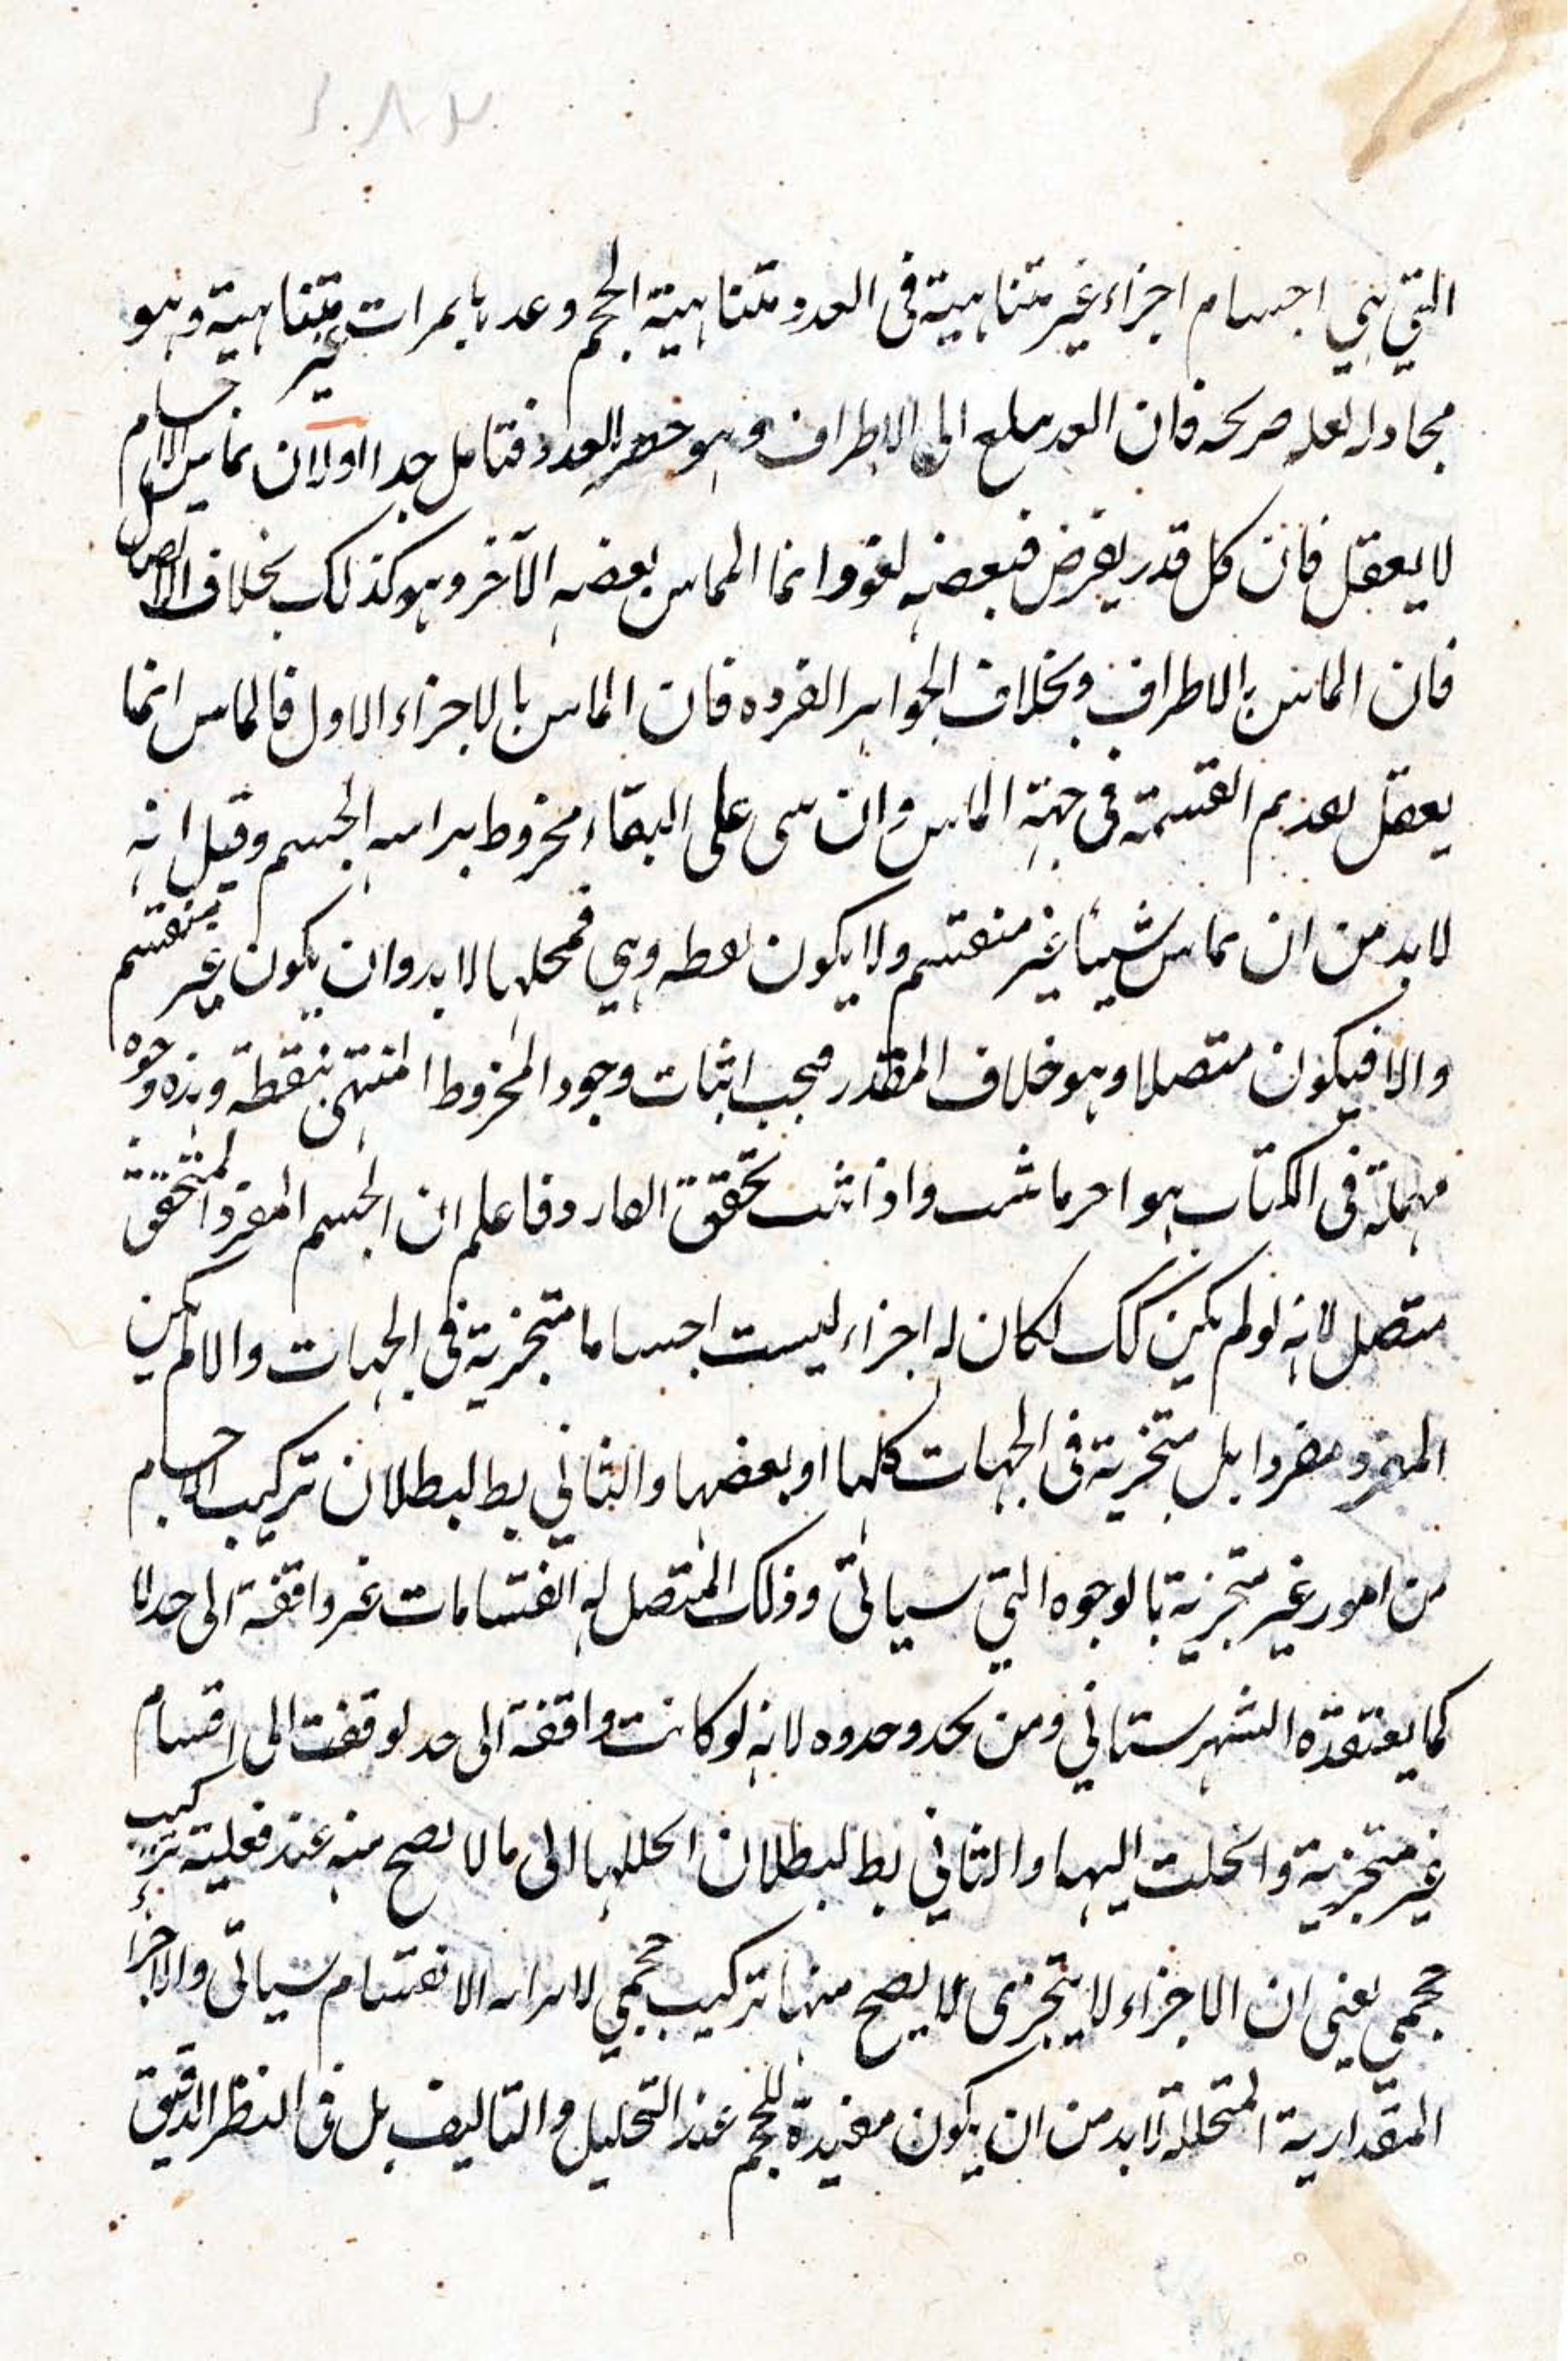 التي هي اجسام اجزاء غير متناهية في العدد متناهية الحجم وعدها بمرات غير متناهية وهو
صريحه فان العد الى الاطراف وهو حصر العدد فتامل جدا اولا ان تماس الاجسام
لا يعقل فان كل قدر يفرض فبعضه لغو وانما المماس بعضه الآخر وهو كذلك بخلاف الاتصال
فان المماس بالاطراف وبخلاف الجواهر الفرده فان المماس بالاجزاء الاول فالماس انما
يعقل بعديم القسمة في جهة الماس وان على البقاء مخروط براسه الجسم وقيل انه
لا بد من ان يماس شيئا غير منقسم ولا يكون نقطه وهي فمحلها لا بد وان يكون غير منقسم
والا فيكون متصلا وهو خلاف المقدر فيجب اثبات وجود المخروط المنتهى بنقطة وهذه وجوه
مهملة في الكتاب هو واذا تحقق فاعلم ان الجسم المفرد المتحقق
متصل لانه لو لم يكن كك لكان له اجزاء ليست اجساما متجزية في الجهات والا لم يكن
المفرد مفردا بل متجزية في الجهات كلها او بعضها والثاني بط لبطلان تركيب الاجسام
من امور غير متجزية بالوجوه التي سياتى وذلك المتصل له انقسامات غير واقفة الى حد لا
كما يعتقده الشهرستاني ومن يحدو حدوه لانه لو كانت واقفة الى حد لوقفت الى اقسام
غير متجزية وانحلت اليها والثاني بط لبطلان انحلالها الى ما لا يصح منه عند فعليته تركيب
حجمي يعني ان الاجزاء لا يتجزى لا يصح منها تركيب حجمي الانقسام سياتى والاجزاء
المقدارية المتحللة لا بد من ان يكون مفيدة للحجم عند التحليل والتاليف بل في النظر الدقيق